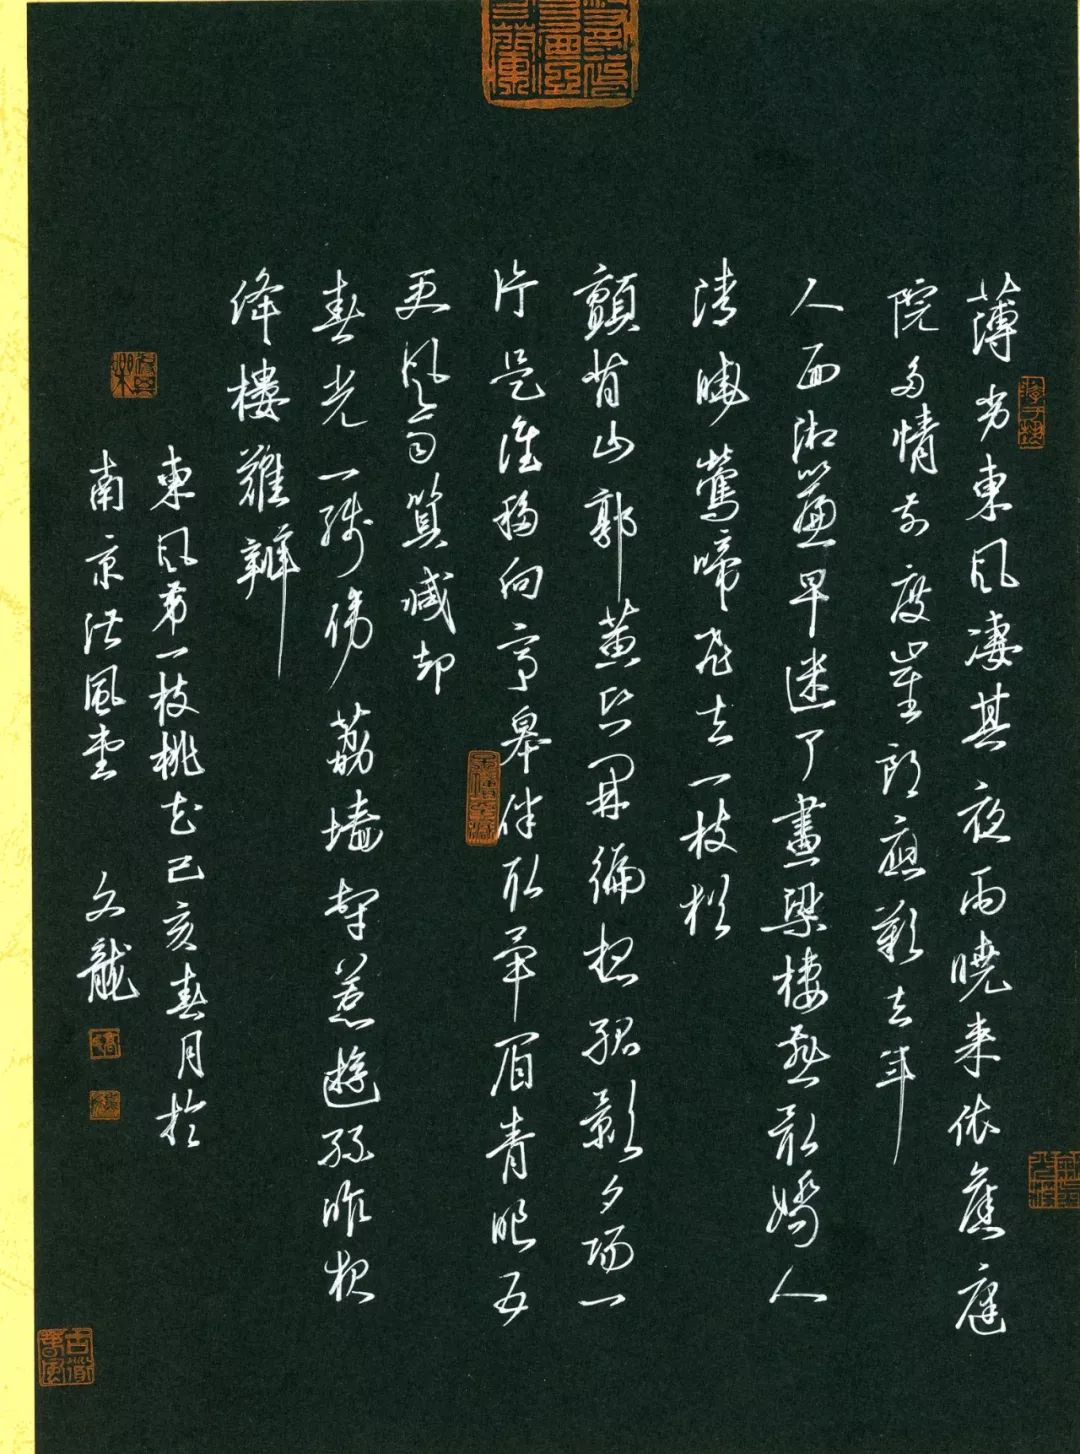 薄劣東風淒其夜雨曉来依舊庭
院多情前度崔郎應歎去年
人面湘簾早迷了畫梁棲燕最嬌人
清曉鶯啼飛去一枝猶
顫背山郭黃昏開徧想孤影夕陽一
片是誰移向亭皋伴取暈眉青眼五
更風雨算減却
春光一綫傍荔墙牽惹遊絲昨夜
絳樓難辨
東風第一枝桃花己亥春月於
南京風堂 文龍